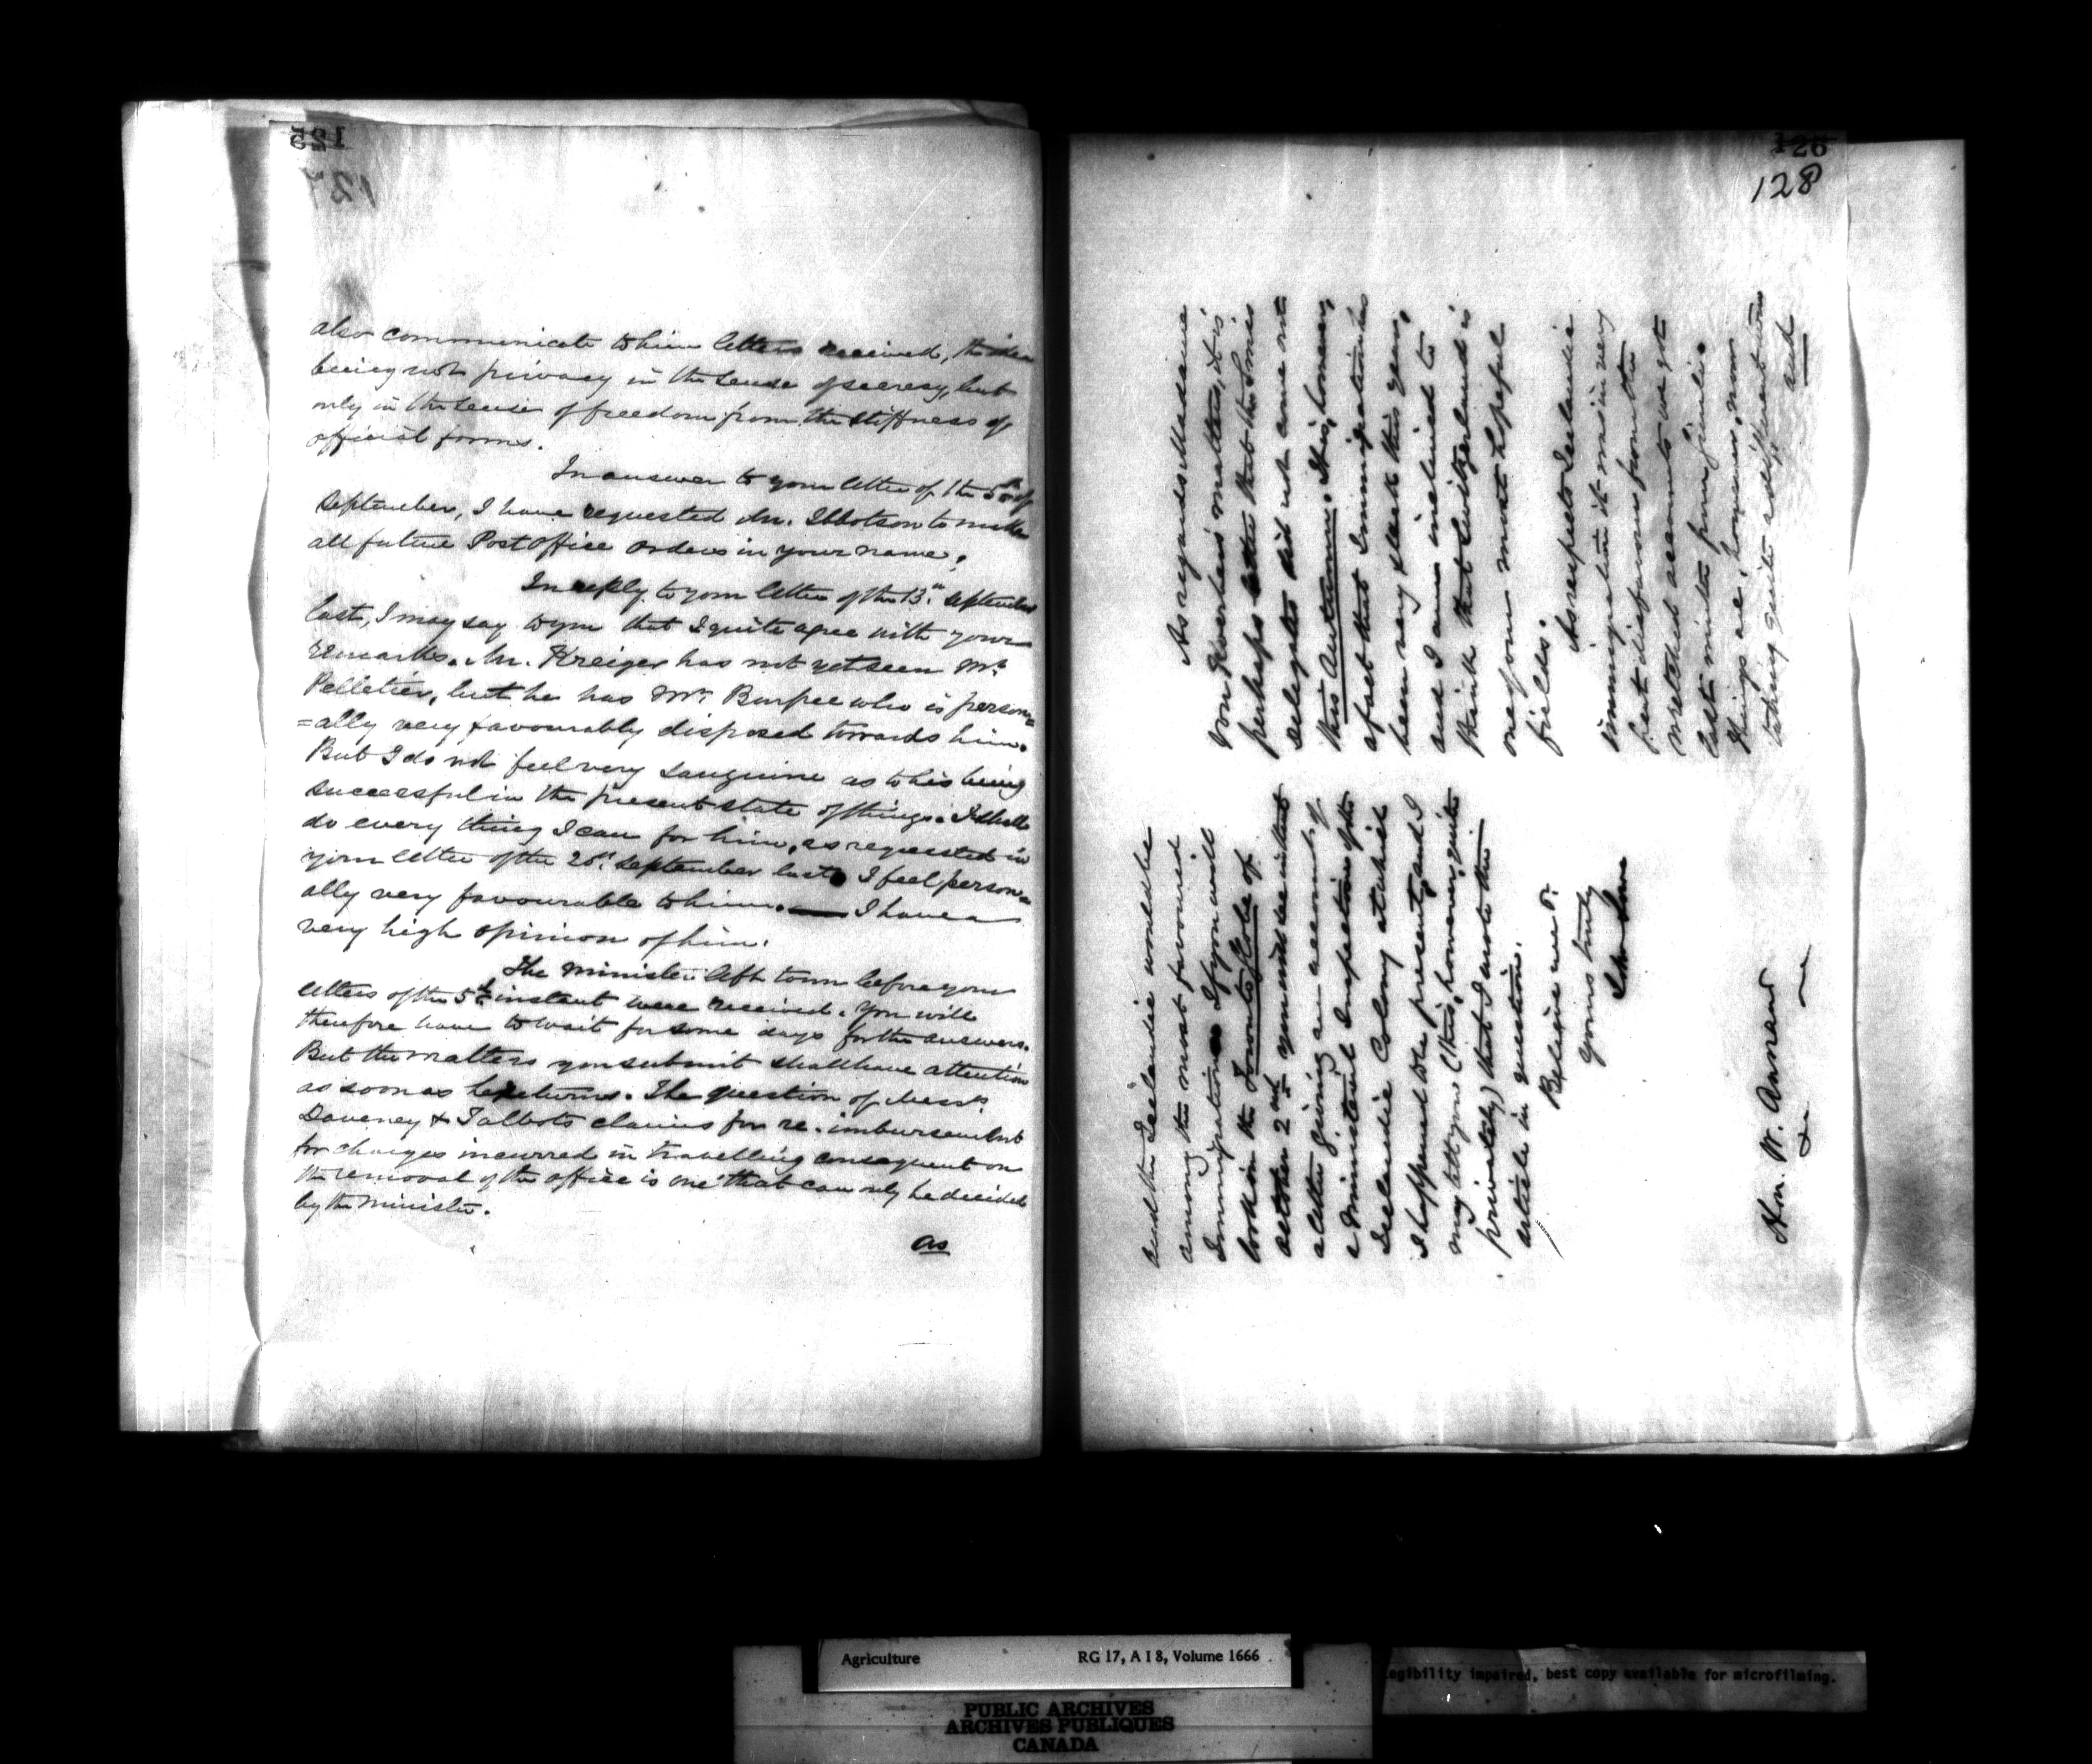 125
127
also communicate to him letters received, the idea
being not privacy in the sense of secrecy, but
only in the sense of freedom from the stiffness of
official forms.
In answer to your letter of the 5th of
September, I have requested Mr. Ibbotson to make
all future Post Office orders in your name.
In reply to your letter of the 13th September
last, I may say to you that I quite agree with your
remarks. Mr. Kreiger has not yet seen Mr
Pelletier, but he has Mr Burpee who is person=
=ally very favourably disposed towards him.
But I do not feel very sanguine as to his being
successful in the present state of things. I shall
do every thing I can for him, as requested in
your letter of the 20th September last. I feel person=
ally very favourable to him. — I have a
very high opinion of him.
The Minister left town before your
letters of the 5th instant were received. You will
therefore have to wait for some days for the answers.
But the matters you submit shall have attention
as soon as he returns. The question of Messrs
Daveney & Talbots claims for re-imbursement
for charges incurred in travelling consequent on
the removal of the office is one that can only be decided
by the Minister.
as
126
128
As regards Madame
von Koerber's matters, it is
perhaps better that the Swiss
delegates did not come out
this Autumn. It is, however,
a fact that Immigration has
been very slack this year,
and I am inclined to
think that Switzerland is
one of our most hopeful
fields.
As respects Icelandic
immigration it was in very
great disfavour from the
wretched accounts we got
last winter from Gimli.
Things are, however, now
taking quite a different turn
and
and the Icelandic would be
among the most favoured
Immigration. If you will
look in the Toronto Globe of
October 2nd you will see in that
a letter giving an account of
a Ministerial Inspection of the
Icelandic Colony at which
I happened to be present, and I
may tell you (this, however, quite
privately) that I wrote the
article in question.
Believe me &
Yours truly
J. Lowe
Hon. W. Annand